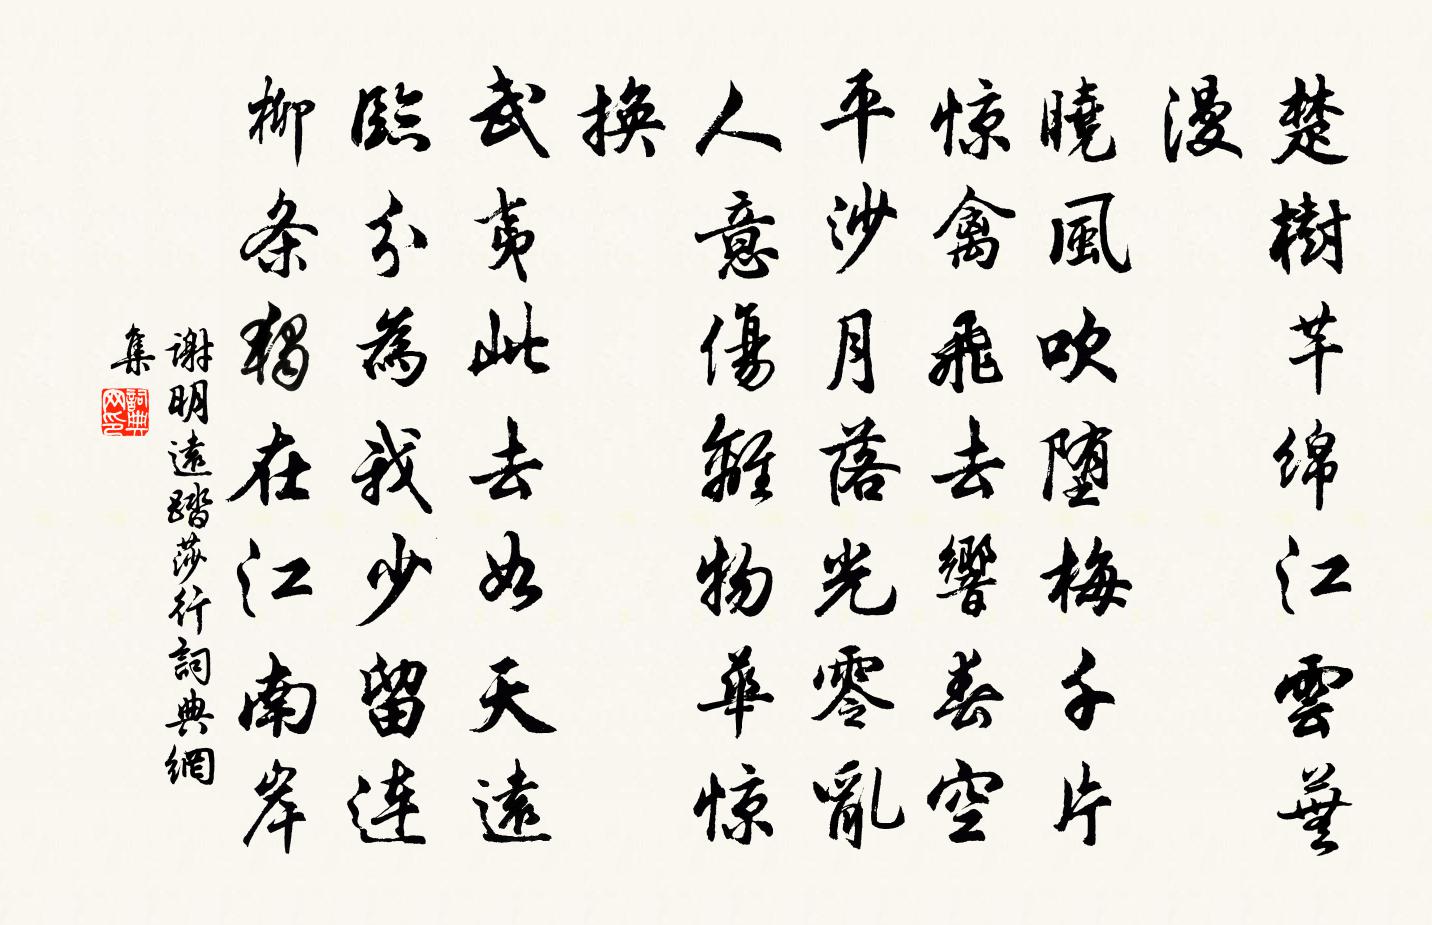 楚樹芊綿江雲蕪
漫
曉風吹堕梅千片
惊禽飛去響春空
平沙月落光零亂
人意傷離物華惊
換
武夷此去如天遠
臨分為我少留連
柳条獨在江南岸
謝明遠踏莎行詞典網
集
詞典
网印